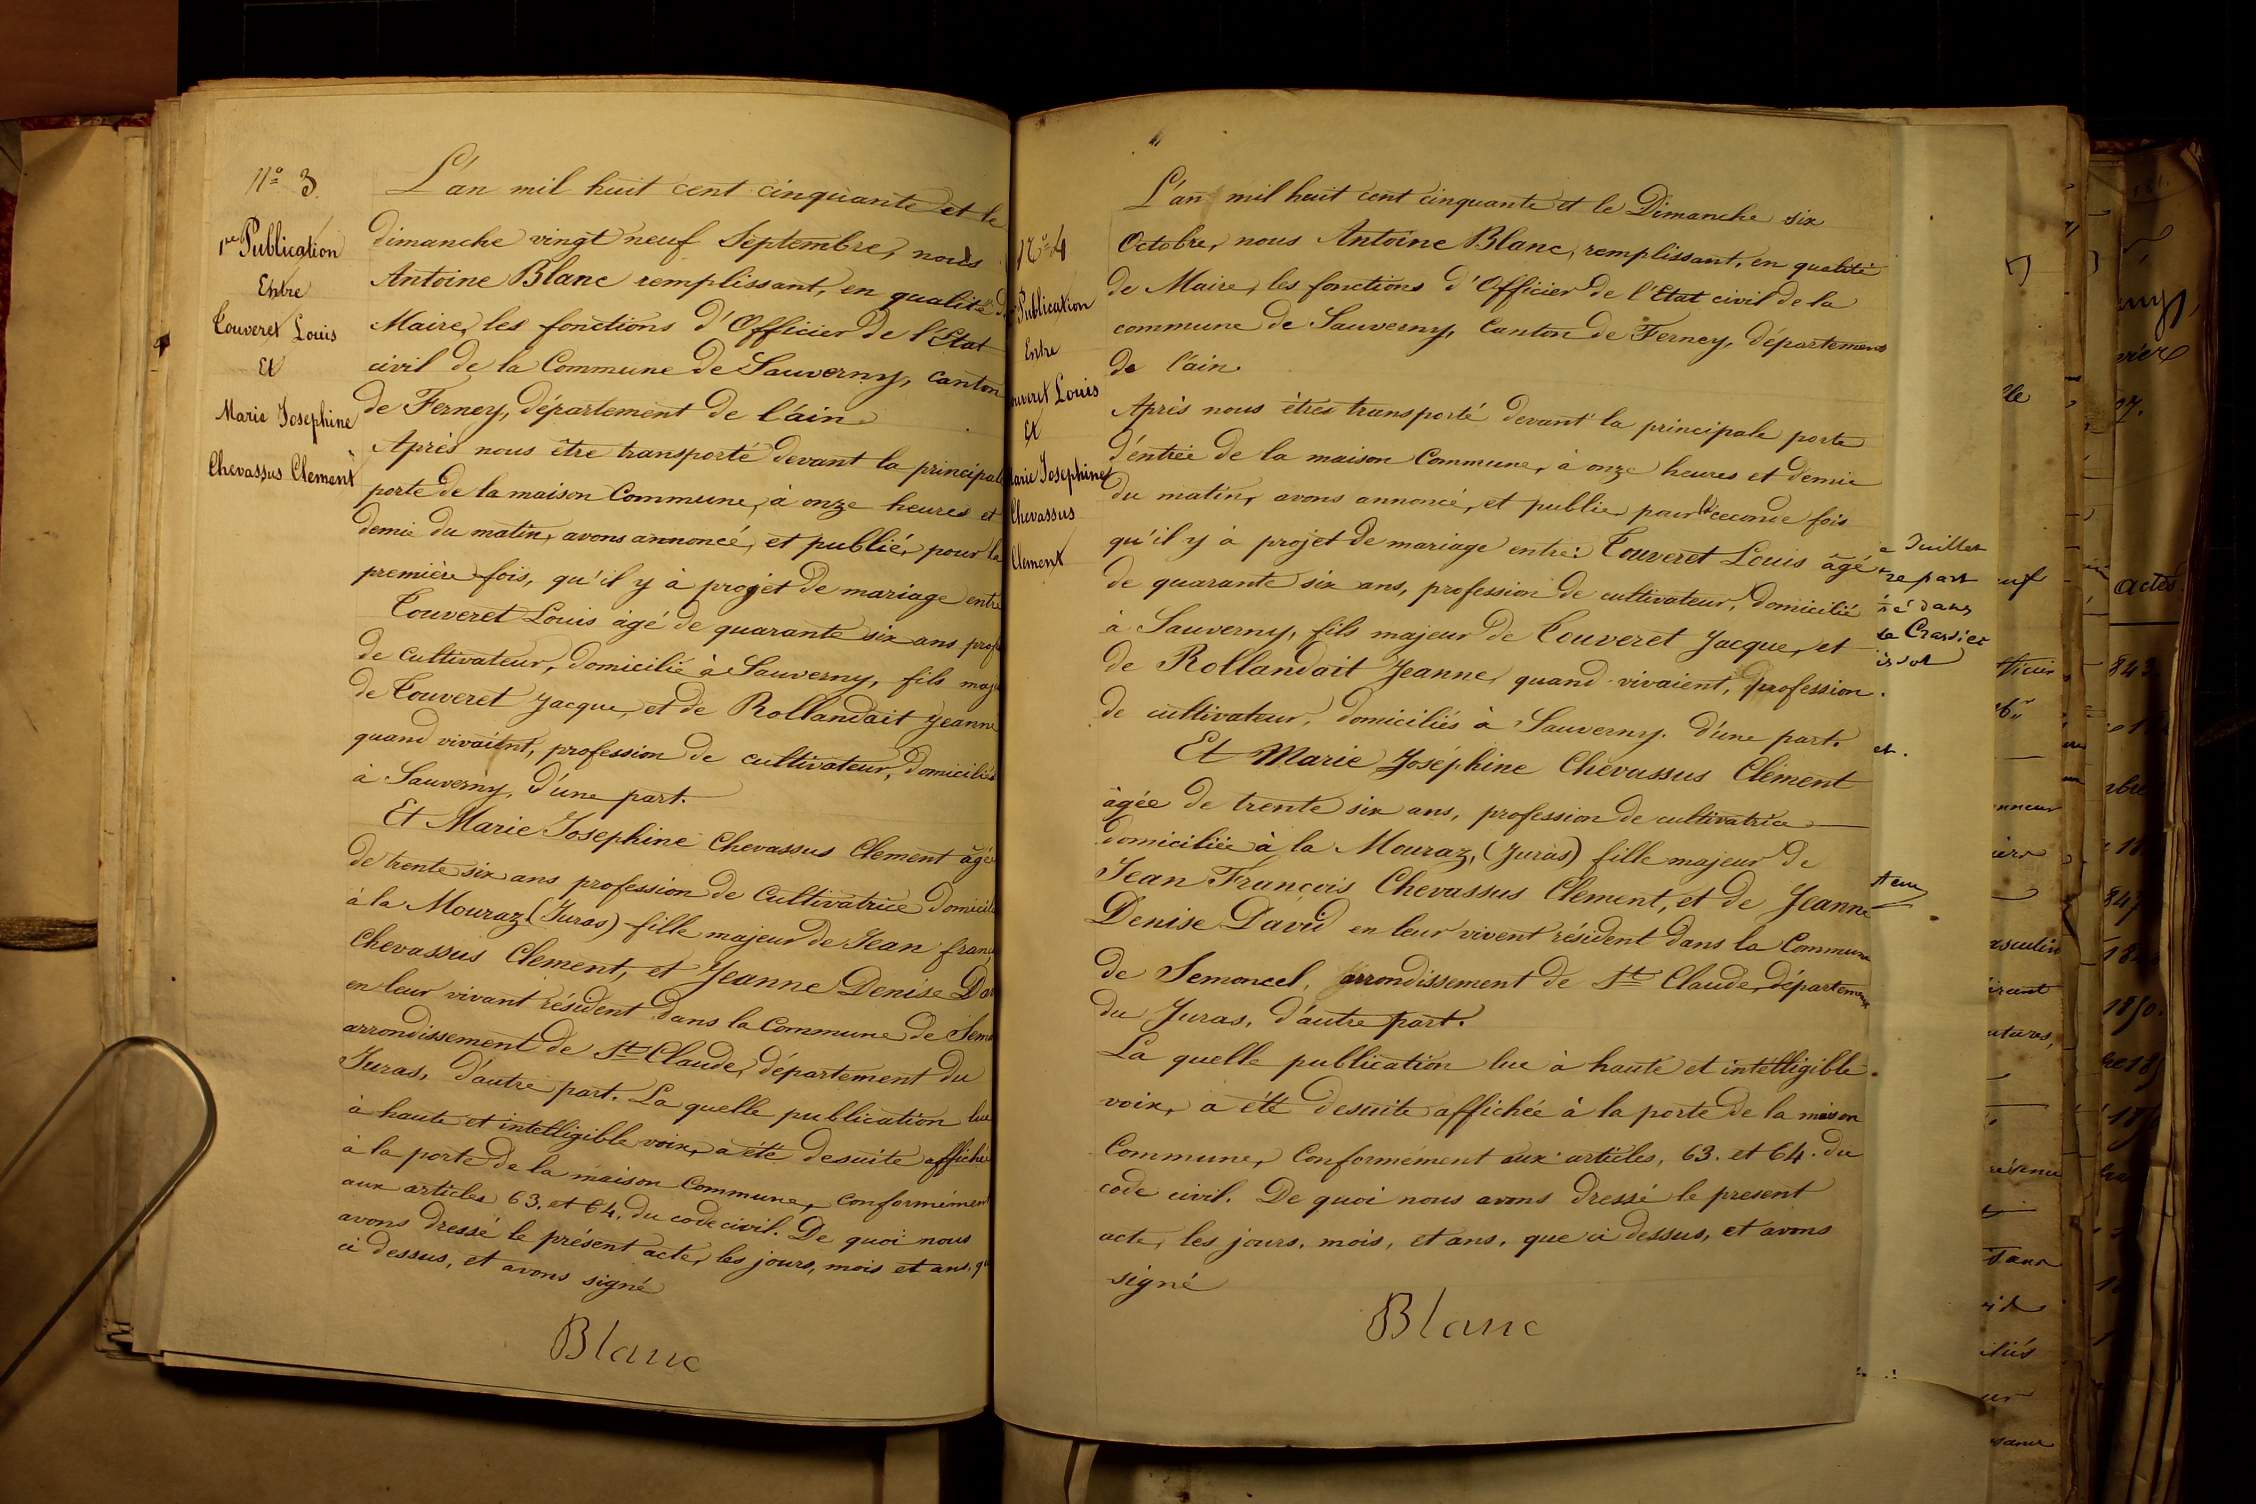 N° 3.
1re Publication
Entre
Touveret Louis
Et
Marie Josephine
Chevassus Clement
L'an mil huit cent cinquante et le
dimanche vingt neuf Septembre, nous
Antoine Blanc remplissant, en qualité de
Maire, les fonctions d'Officier de l'Etat
civil de la Commune de Sauverny, canton
de Ferney, département de l'ain.
Après nous être transporté devant la principale
porte de la maison Commune, à onze heures et
demie du matin, avons annoncé, et publié, pour la
première fois, qu'il y à projet de mariage entre
Touveret Louis âgé de quarante six ans prof
de cultivateur, domicilié à Sauverny, fils maje
de Touveret Jacque, et de Rollandait Jeanne
quand vivaient, profession de cultivateur, domiciliés
à Sauverny, d'une part.
Et Marie Josephine Chevassus Clement âgée
de trente six ans profession de Cultivatrice domicil
à la Mouraz (Juras) fille majeur de Jean franç
Chevassus Clement, et Jeanne Denise Dav
en leur vivant résident dans la Commune de Semo
arrondissement de St Claude, département du
Juras, d'autre part. La quelle publication lue
à haute et intelligible voix, a été desuite affiché
à la porte de la maison Commune, conformément
aux articles 63. et 64. du code civil. De quoi nous
avons dressé le présent acte, les jours, mois et ans, q
ci dessus, et avons signé
Blanc
N° 4
Publication
Entre
ouveret Louis
Et
Marie Josephine
Chevassus
Clement
L'an mil huit cent cinquante et le Dimanche six
Octobre, nous Antoine Blanc, remplissant, en qualité
de Maire, les fonctions d'Officier de l'Etat civil de la
commune de Sauverny, Canton de Ferney, département
de l'ain.
Après nous êtres transporté devant la principale porte
d'entrée de la maison Commune, à onze heures et demie
du matin, avons annoncé, et publié, pour la ceconde fois
qu'il y à projet de mariage entre: Touveret Louis âgé
de quarante six ans, profession de cultivateur, domicilié
à Sauverny, fils majeur de Touveret Jacque, et
de Rollandait Jeanne, quand vivaient, profession
de cultivateur, domiciliés à Sauverny. d'une part.
Et Marie Joséphine Chevassus Clément
âgée de trente six ans, profession de cultivatrice
domiciliée à la Mouraz, (Juras) fille majeur de
Jean François Chevassus Clement, et de Jeanne
Denise David en leur vivent résident dans la Commune
de Semoncel, arrondissement de St Claude, département
du Juras, d'autre part.
La quelle publication lue à haute et intelligible
voix, a été desuite affichée à la porte de la maison
Commune, Conformément aux articles, 63. et 64. du
code civil. De quoi nous avons dressé le present
acte, les jours, mois, et ans, que ci dessus, et avons
signé
Blanc
Juillet
part
dans
et
actes
1850.